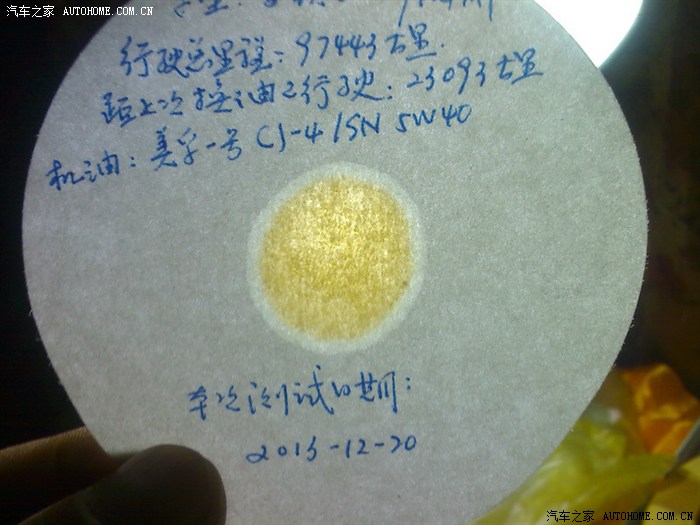 汽车之家 AUTOHOME.COM.CN
行驶总里程：97443公里
距上次换油已行驶：23093公里
机油：美孚一号 CJ-4/SN 5W40
本次测试日期：
2013-12-20
汽车之家 AUTOHOME.COM.CN